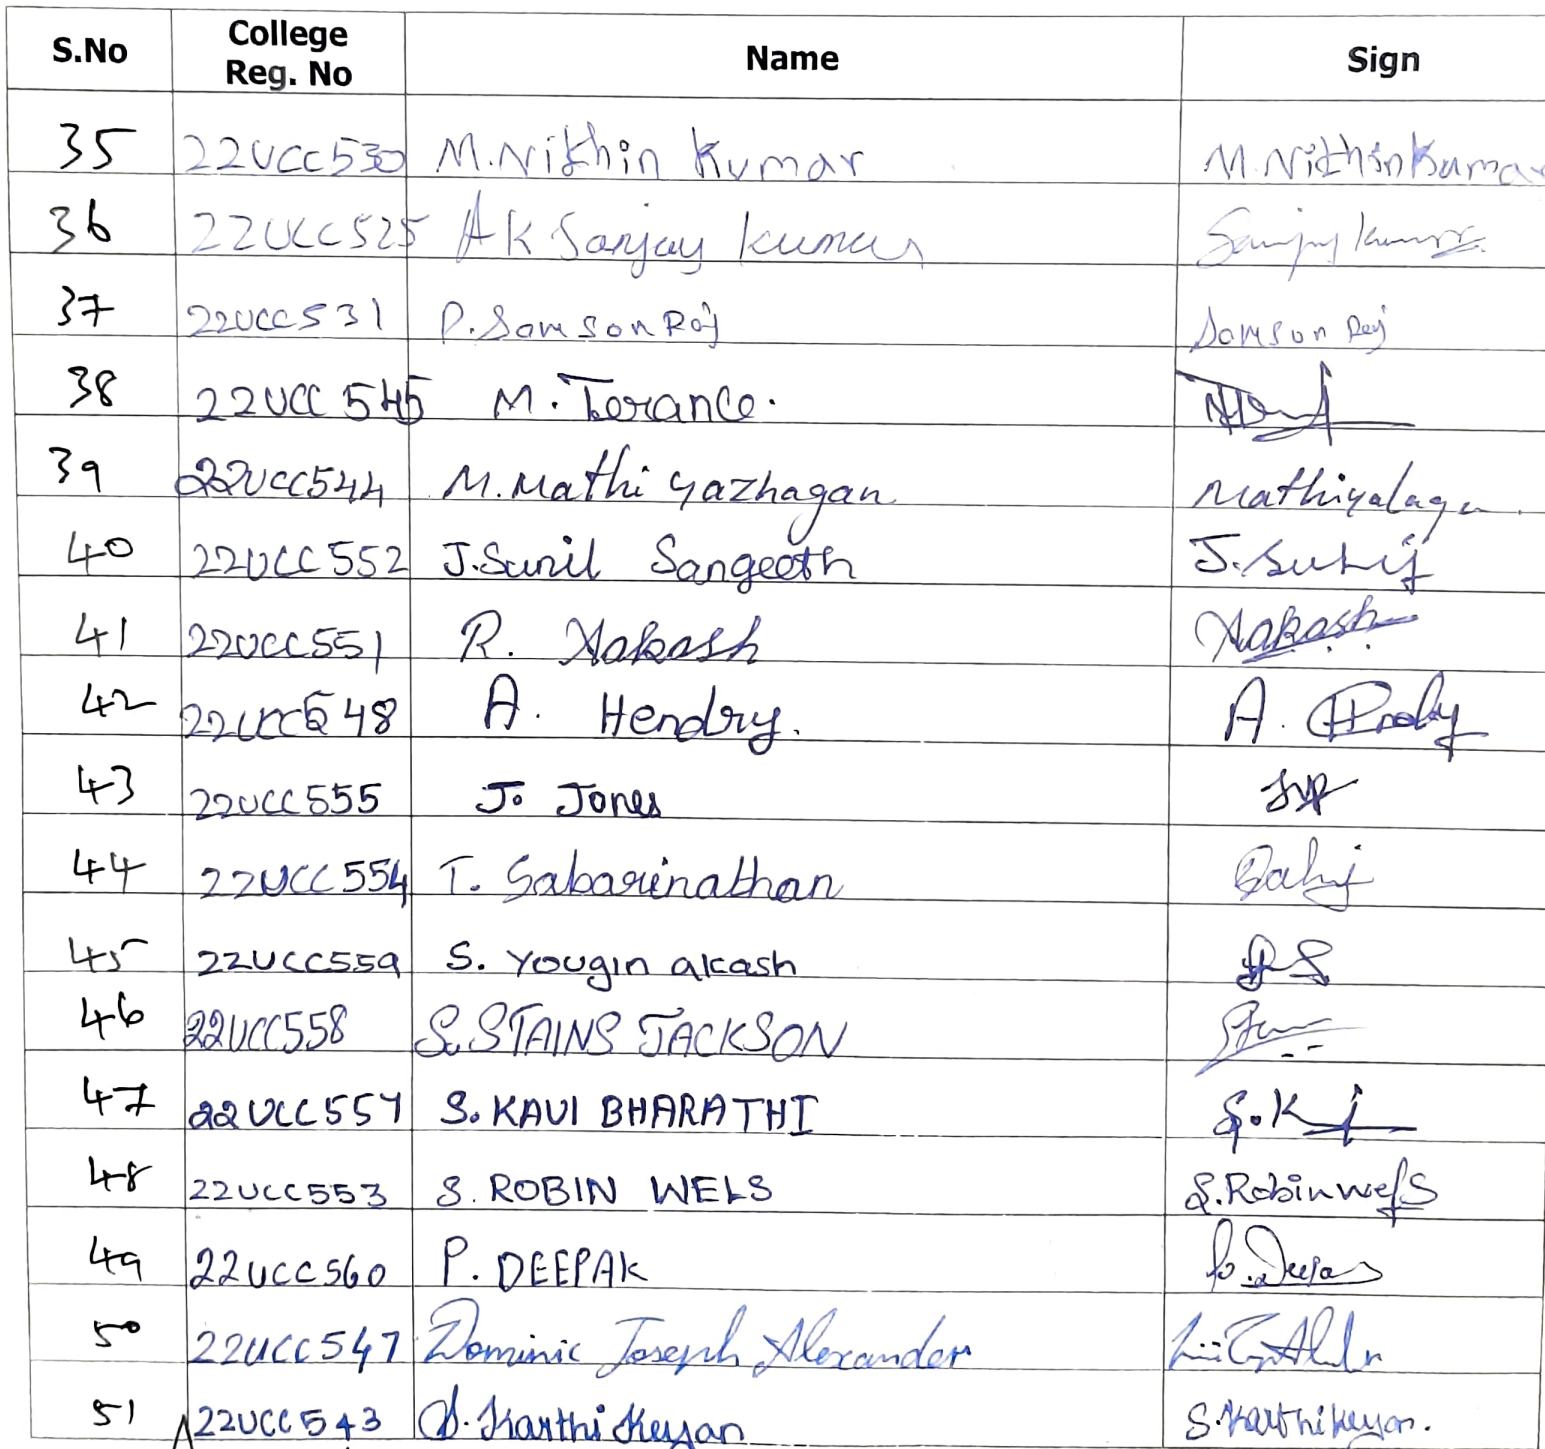 S.No College Reg. No Name Sign
35 22UCC530 M.Nikhin Kumar M.NikhinKumar
36 22UCC525 AK Sanjay kumar Sanjay kumar
37 22UCC531 P.Samson Raj Samson Raj
38 22UCC 545 M. Terance.
39 22UCC544 M.Mathi yazhagan Mathiyalagan
40 22UCC 552 J.Sunil Sangeeth J.Sunil
41 22UCC551 R. Aakash Aakash
42 22UCC548 A. Hendry. A. Hendry
43 22UCC555 J. Jones
44 22UCC554 T. Sabarinathan
45 22UCC559 S. Yougin akash
46 22UCC558 S.STAINS JACKSON
47 22UCC557 S.KAVI BHARATHI S.K
48 22UCC553 S. ROBIN WELS S.Robinwels
49 22UCC560 P. DEEPAK P.Deepak
50 22UCC547 Dominic Joseph Alexander
51 22UCC543 S.Karthi Keyan S.Karthikeyan.